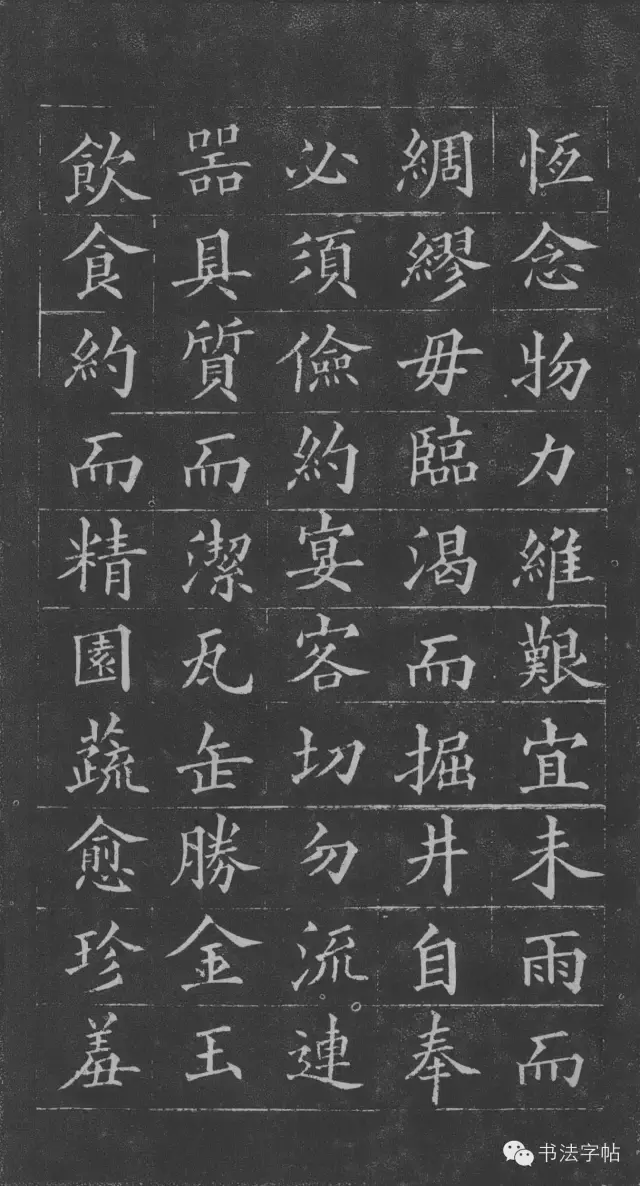 恆念物力維艱宜未雨而
綢繆毋臨渴而掘井自奉
必須儉約宴客切勿流連
器具質而潔瓦缶勝金玉
飲食約而精園蔬愈珍羞
书法字帖